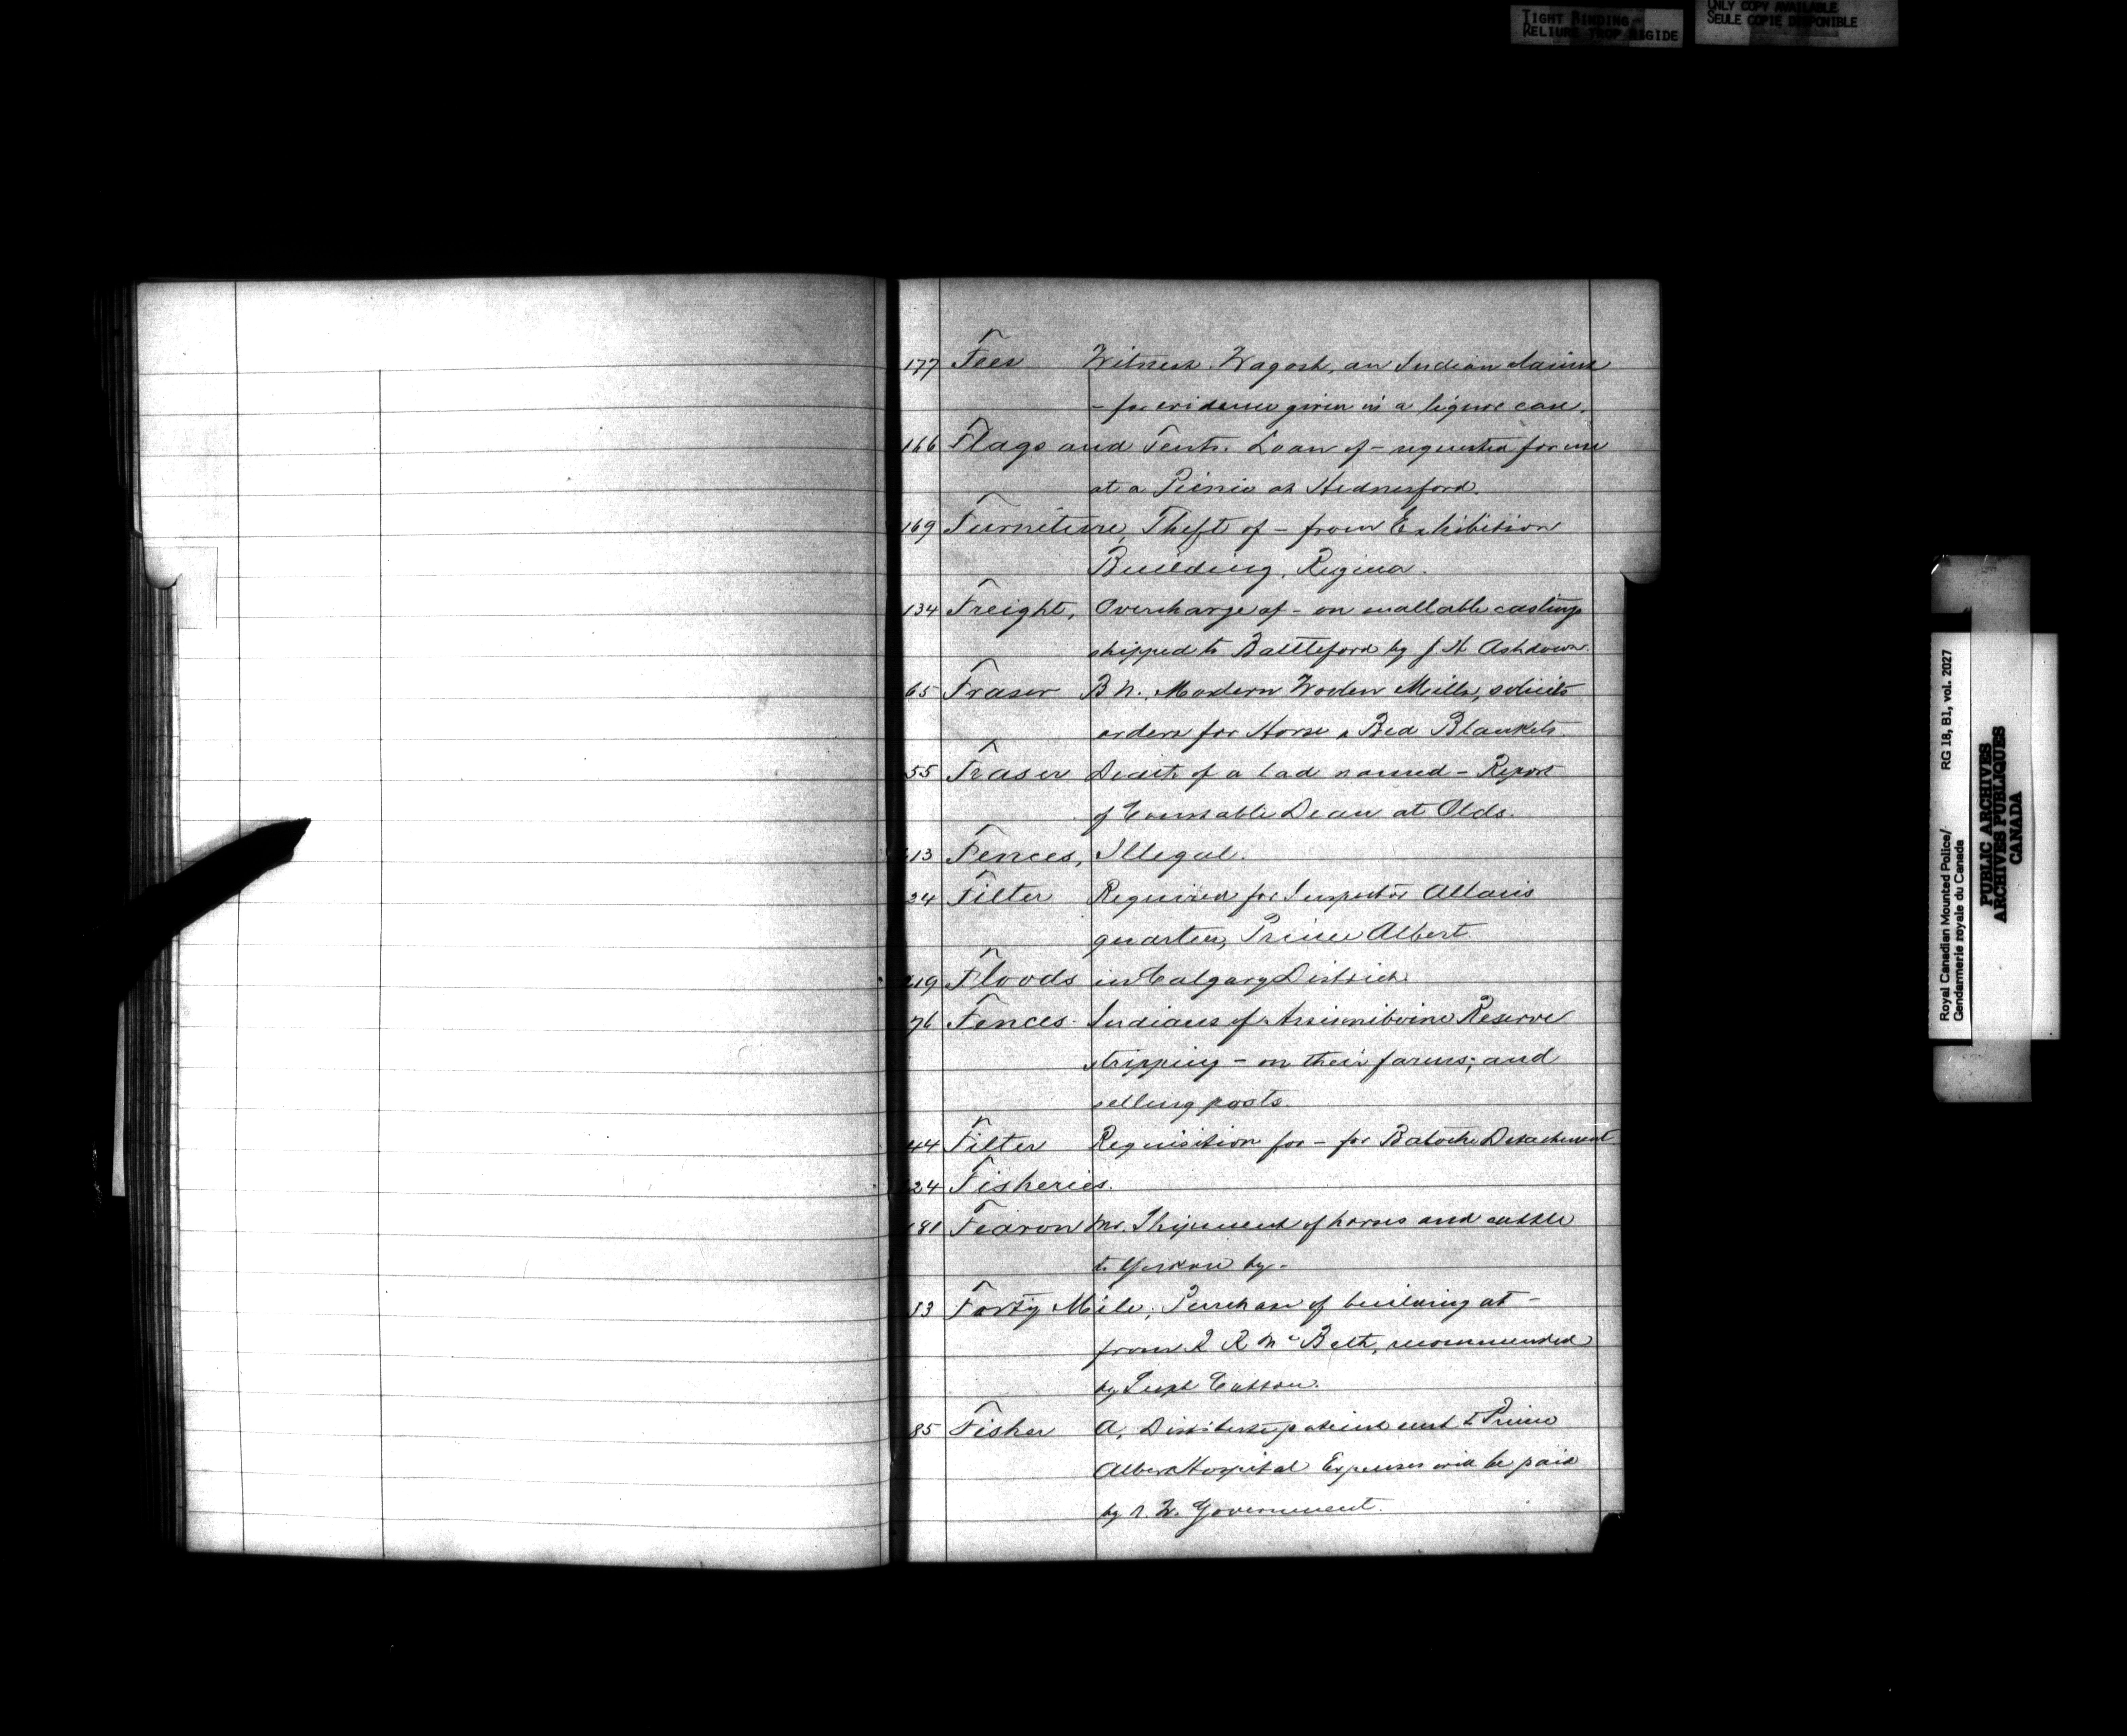 TIGHT BINDING -
RELIURE TROP RIGIDE
ONLY COPY AVAILABLE
SEULE COPIE DISPONIBLE
177 Fees Witness. Wagosh, an Indian claims
- for evidence given in a liquor case.
166 Flags and Tents. Loan of - requested for use
at a Picnic at Hednesford.
169 Furniture, Theft of - from Exhibition
Building, Regina.
134 Freight, Overcharge of - on mallable castings
shipped to Battleford by J. H Ashdown.
65 Fraser B N. Modern Woolen Mills, solicits
orders for Horse & Bed Blankets
55 Fraser Death of a lad named - Report
of Constable Dean at Olds.
13 Fences, Illegal.
24 Filter Required for Inspector Allan's
quarters, Prince Albert.
219 Floods in Calgary District.
76 Fences. Indians of Assiniboine Reserve
stripping - on their farms; and
selling posts.
44 Filter Requisition for - for Batoche Detachment
24 Fisheries.
181 Fearon Mr. Shipment of horses and cattle
to Yukon by -
33 Forty Mile, Purchase of building at -
from R McBeth, recommended
by Supt
85 Fisher A, patient sent to Prince
Albert Hospital Expenses will be paid
by N. W. Government.
Royal Canadian Mounted Police/ RG 18, B1, vol. 2027
Gendarmerie royale du Canada
PUBLIC ARCHIVES
ARCHIVES PUBLIQUES
CANADA